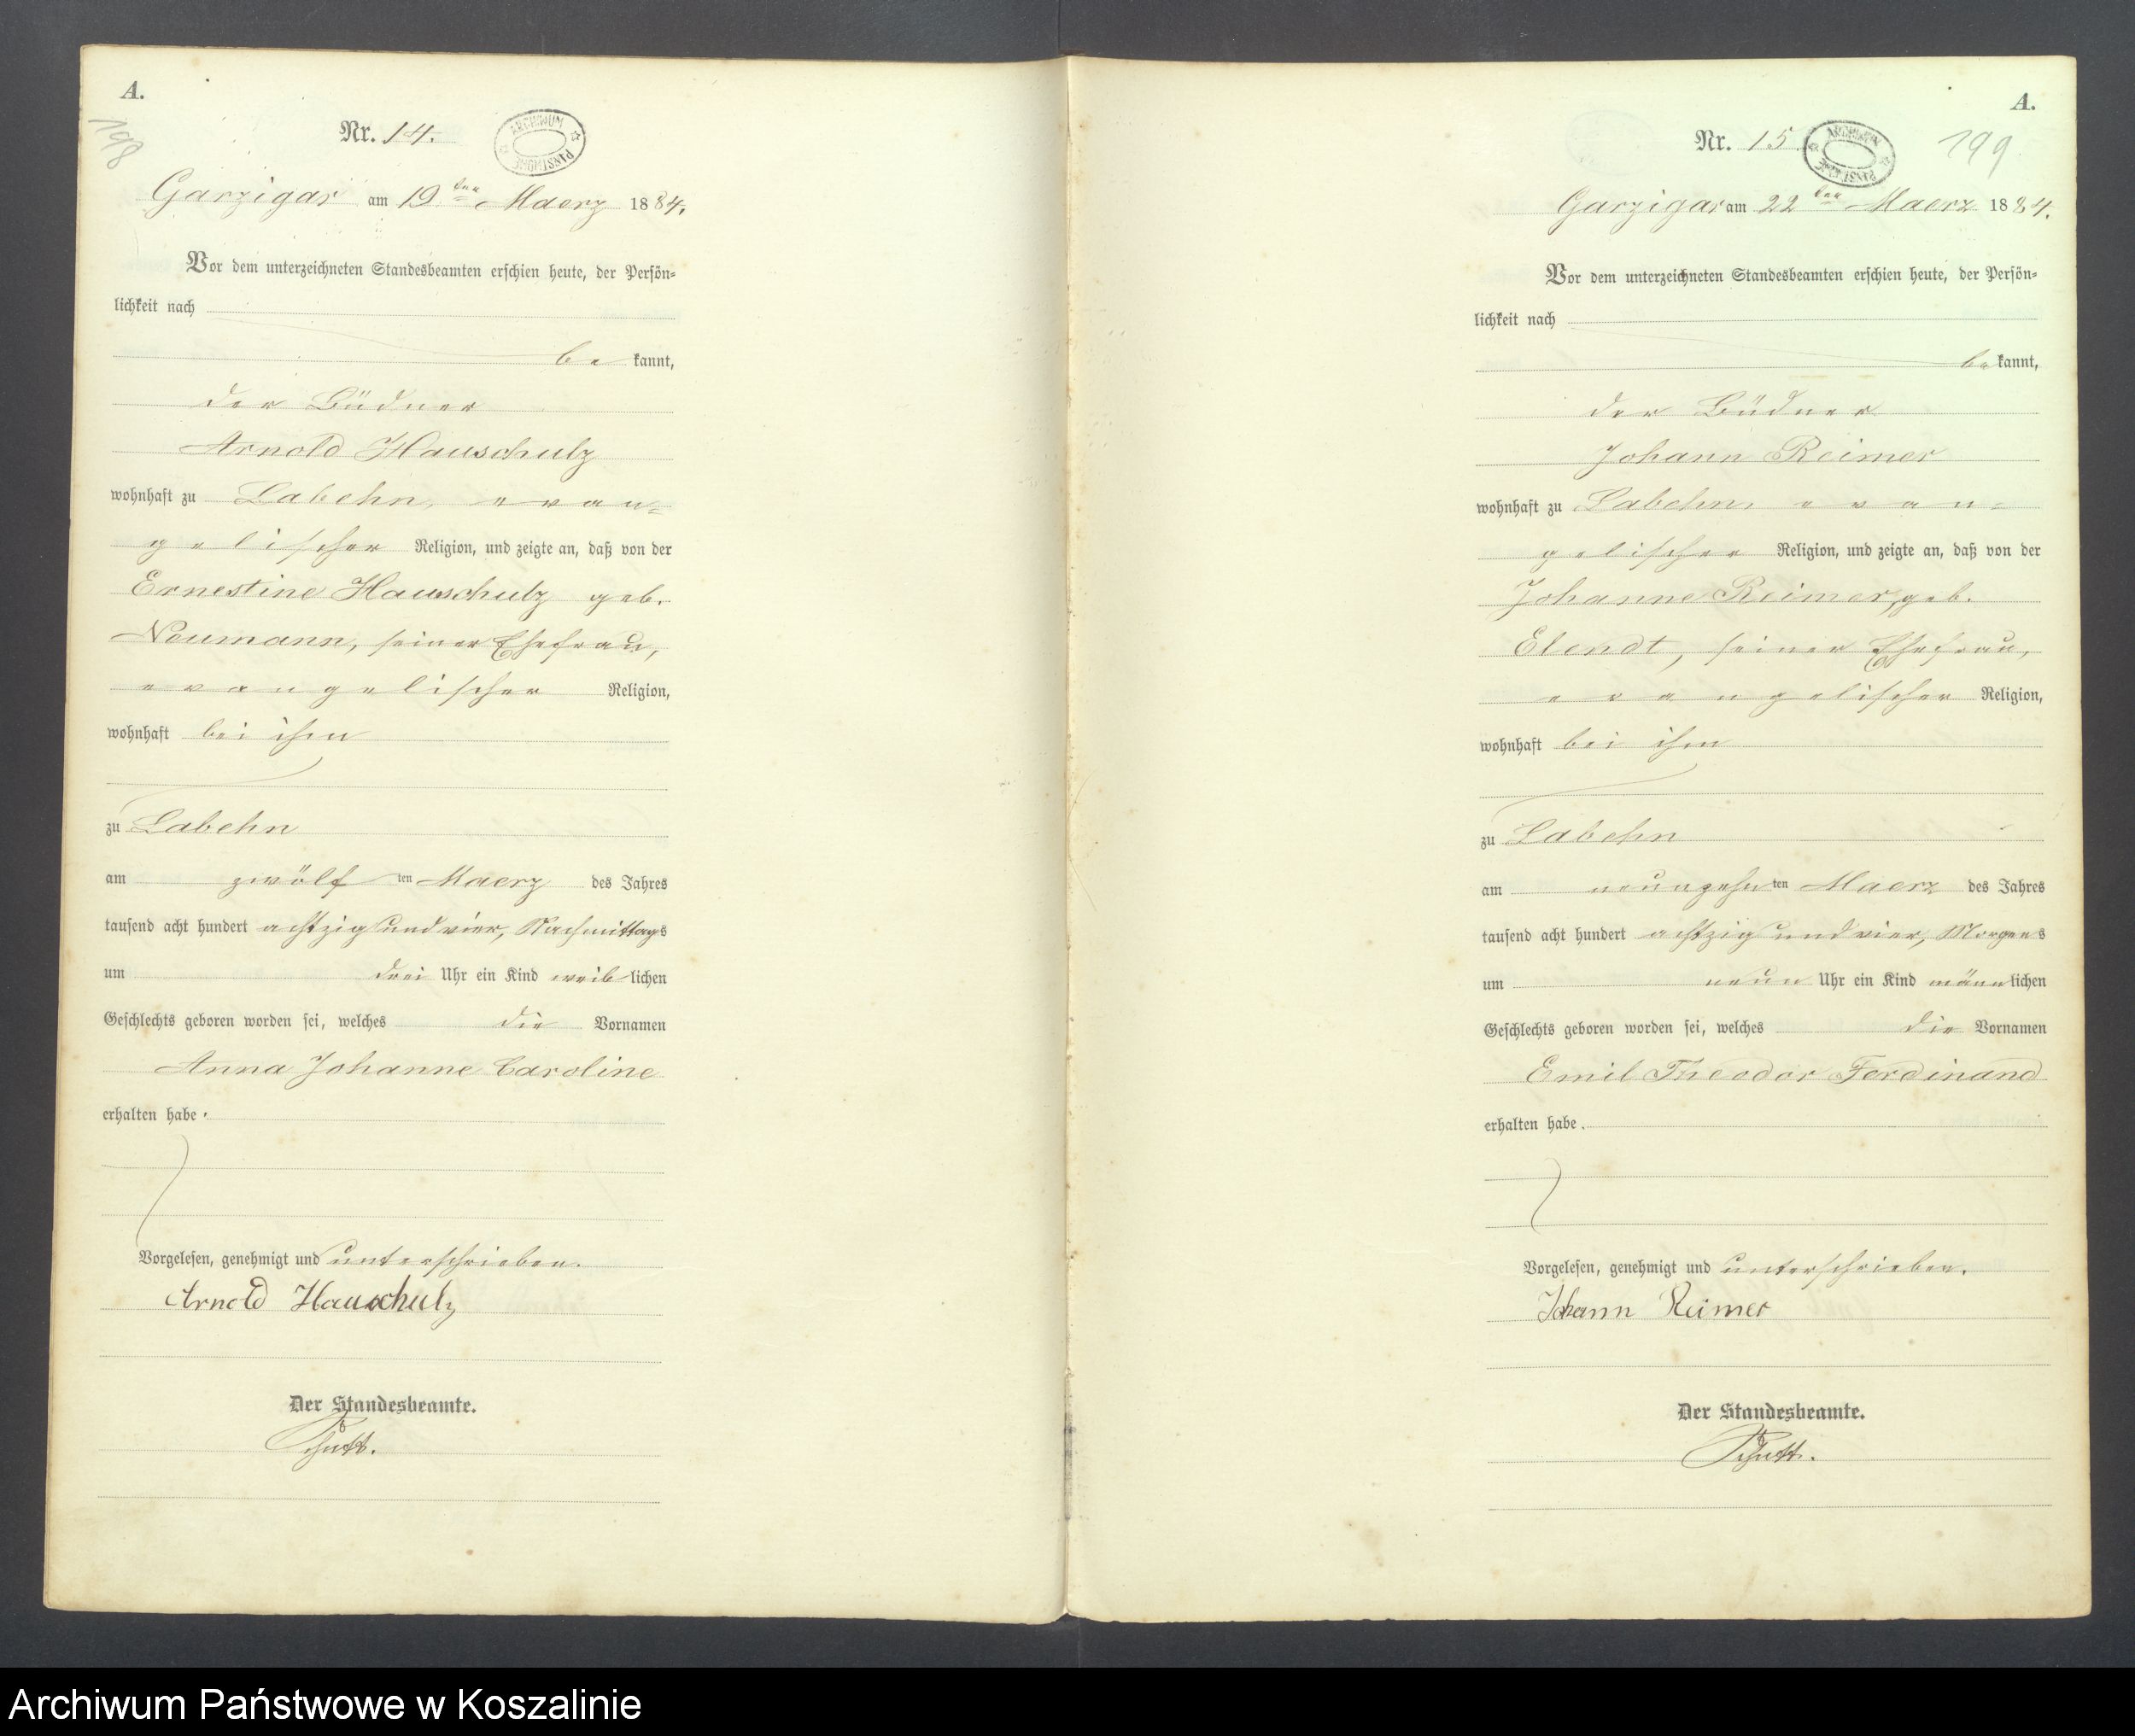 A.
198
Nr. 14.
ARCHIWUM PAŃSTWOWE
Garzigar am 19ten Maerz 1884.
Vor dem unterzeichneten Standesbeamten erschien heute, der Persön-
lichkeit nach
be kannt,
der Büdner
Arnold Hauschulz
wohnhaft zu Labehn, evan=
gelischer Religion, und zeigte an, daß von der
Ernestine Hauschulz geb.
Neumann, seiner Ehefrau,
evangelischer Religion,
wohnhaft bei ihm
zu Labehn
am zwölf ten Maerz des Jahres
tausend acht hundert achtzig und vier, Nachmittags
um drei Uhr ein Kind weib lichen
Geschlechts geboren worden sei, welches die Vornamen
Anna Johanne Caroline
erhalten habe.
Vorgelesen, genehmigt und unterschrieben.
Arnold Hauschulz
Der Standesbeamte.
A.
Nr. 15
ARCHIWUM PAŃSTWOWE
199
Garzigar am 22ten Maerz 1884.
Vor dem unterzeichneten Standesbeamten erschien heute, der Persön-
lichkeit nach
be kannt,
der Büdner
Johann Reimer
wohnhaft zu Labehn, evan=
gelischer Religion, und zeigte an, daß von der
Johanne Reimer, geb.
Elendt, seiner Ehefrau,
evangelischer Religion,
wohnhaft bei ihm
zu Labehn
am neunzehn ten Maerz des Jahres
tausend acht hundert achtzig und vier, Morgens
um neun Uhr ein Kind männ lichen
Geschlechts geboren worden sei, welches die Vornamen
Emil Theodor Ferdinand
erhalten habe.
Vorgelesen, genehmigt und unterschrieben.
Johann Reimer
Der Standesbeamte.
Archiwum Państwowe w Koszalinie